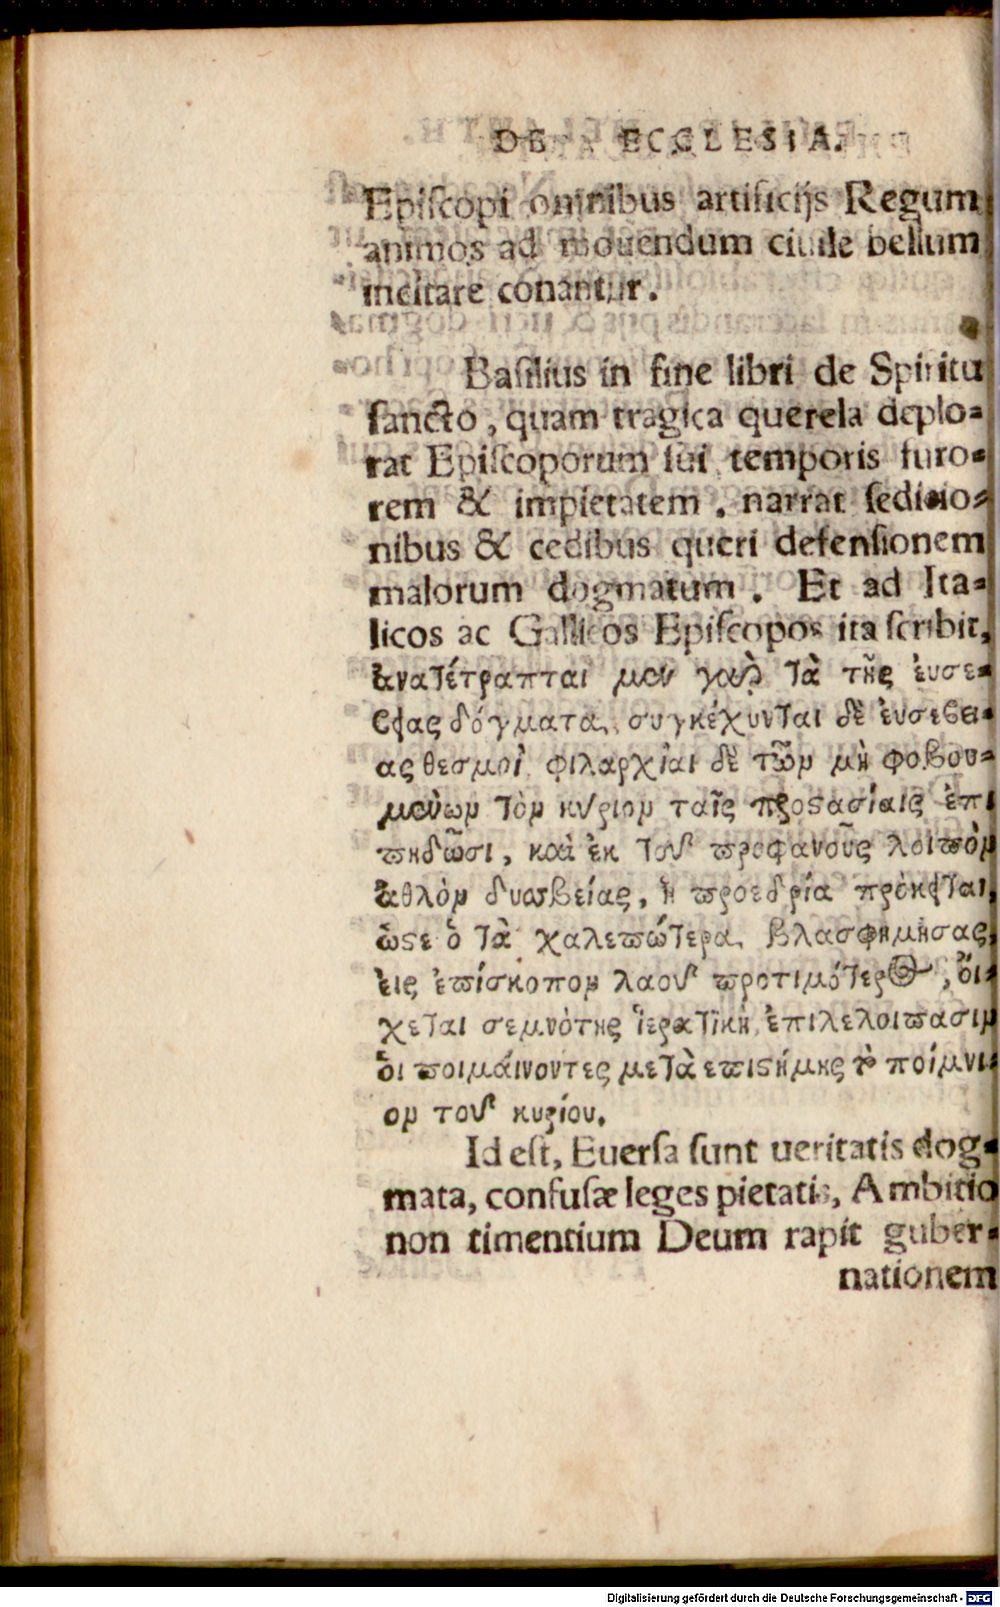 DE ECCLESIA.
Epiſcopi omnibus artificijs Regum
animos ad mouendum ciuile bellum
incitare conantur.
Baſilius in fine libri de Spiritu
ſancto, quam tragica querela deplo⸗
rat Epiſcoporum ſui temporis furo⸗
rem & impietatem. narrat ſeditio⸗
nibus & cedibus queri defenſionem
malorum dogmatum. Et ad Ita⸗
licos ac Gallicos Epiſcopos ita ſcribit,
ἀνατέτραπται μεν γαρ τὰ τῆς ἐυσε⸗
βείας δόγματα, συγκέχυνται δὲ ἐυσεβει⸗
ας θεσμοὶ φιλαρχίαι δὲ τῶν μὴ φοβου⸗
μενων τὸν κυριον ταῖς προςασίαις ἐπι
πηδῶσι, καὶ ἐκ του προφανοῦς λοιπὸν
ἀθλὸν δυσσβείας, ἡ προεδρία πρὸκειται,
ὡςε ὁ τὰ χαλεπώτερα βλασφημήσας,
ἐις ἐπίσκοπον λαου προτιμότερος, ὄι⸗
χεται σεμνὸτης ἱερατικὴ, ἐπιλελοιπασιν
ὁι ποιμάινοντες μετὰ επιςήμης το ποίμνι⸗
ον του κυρίου.
Id eſt, Euerſa ſunt ueritatis dog⸗
mata, confuſæ leges pietatis, Ambitio
non timentium Deum rapit guber⸗
nationem
Digitalisierung gefördert durch die Deutsche Forschungsgemeinschaft - DFG